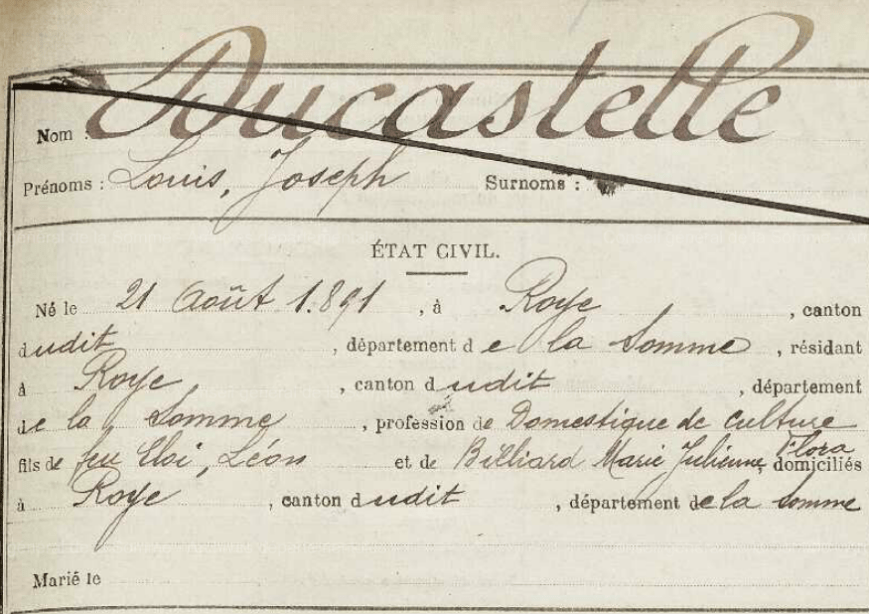 Nom : Ducastelle
Prénoms : Louis, Joseph Surnoms :
ÉTAT CIVIL.
Né le 21 Août 1.891, à Roye, canton
dudit, département de la Somme, résidant
à Roye, canton dudit, département
de la Somme, profession de Domestique de culture
fils de feu Eloi, Léon et de Billiard Marie Julienne, Flora domiciliés
à Roye, canton dudit, département de la Somme
Marié le